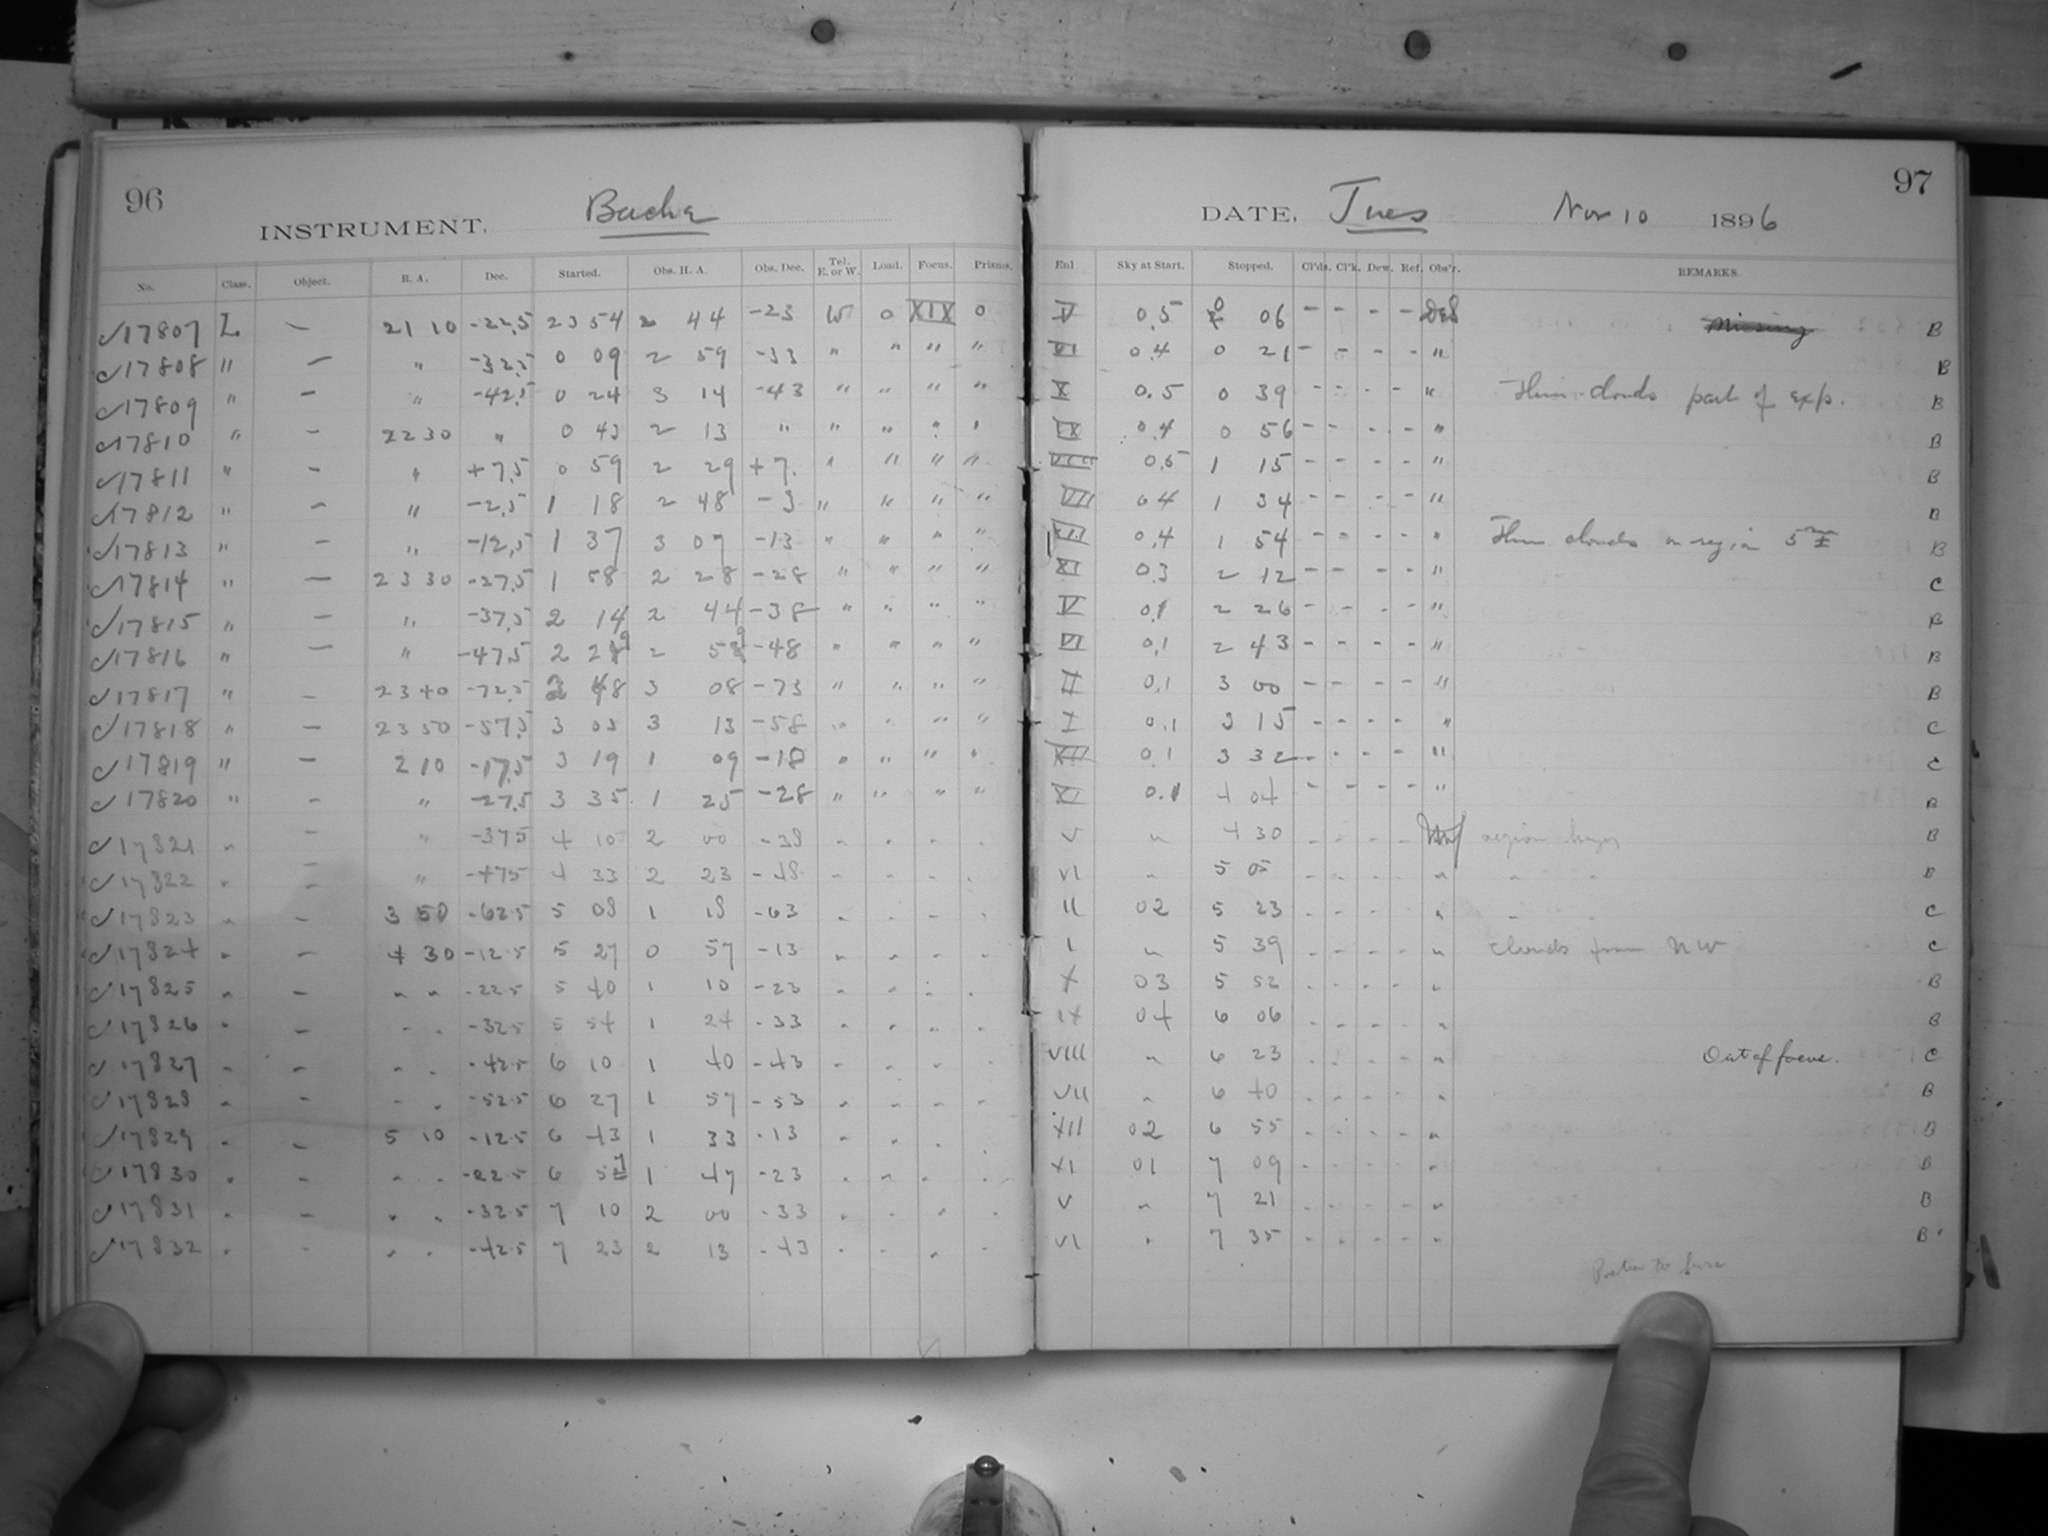 96
INSTRUMENT, Bache
No. Class. Object. R. A. Dec. Started. Obs. H. A. Obs. Dec. Tel. E. or W. Load. Focus. Prisms.
17807 L — 21 10 -22,5 23 54 2 44 -23 W 0 XIX 0
17808 " — " -32,5 0 09 2 59 -33 " " " "
17809 " — " -42,5 0 24 3 14 -43 " " " "
17810 " — 22 30 " 0 43 2 13 " " " " "
17811 " — " +7,5 0 59 2 29 +7. " " " "
17812 " — " -2,5 1 18 2 48 -3 " " " "
17813 " — " -12,5 1 37 3 07 -13 " " " "
17814 " — 23 30 -27,5 1 58 2 28 -28 " " " "
17815 " — " -37,5 2 14 2 44 -38 " " " "
17816 " — " -47,5 2 29 2 59 -48 " " " "
17817 " — 23 40 -72,5 2 48 3 08 -73 " " " "
17818 " — 23 50 -57,5 3 03 3 13 -58 " " " "
17819 " — 2 10 -17,5 3 19 1 09 -18 " " " "
17820 " — " -27,5 3 35 1 25 -28 " " " "
17821 " — " -37 5 4 10 2 00 -38 " " " "
17822 " — " -47 5 4 33 2 23 -48 " " " "
17823 " — 3 50 -62.5 5 08 1 18 -63 " " " "
17824 " — 4 30 -12.5 5 27 0 57 -13 " " " "
17825 " — " " -22.5 5 40 1 10 -23 " " " "
17826 " — " " -32.5 5 54 1 24 -33 " " " "
17827 " — " " -42.5 6 10 1 40 -43 " " " "
17828 " — " " -52.5 6 27 1 57 -53 " " " "
17829 " — 5 10 -12.5 6 43 1 33 -13 " " " "
17830 " — " " -22.5 6 57 1 47 -23 " " " "
17831 " — " " -32.5 7 10 2 00 -33 " " " "
17832 " — " " -42.5 7 23 2 13 -43 " " " "
97
DATE, Tues Nov 10 1896
Enl Sky at Start. Stopped. Cl'ds. Cl'k. Dew. Ref. Obs'r. REMARKS.
V 0.5 0 06 - - - - DeS Missing B
VI 0.4 0 21 - - - - " B
X 0.5 0 39 - - - - " Thin clouds part of exp. B
IX 0.4 0 56 - - - - " B
VIII 0.5 1 15 - - - - " B
VII 0.4 1 34 - - - - " B
XII 0.4 1 54 - - - - " Thin clouds in region B
XI 0.3 2 12 - - - - " C
V 0.1 2 26 - - - - " B
VI 0.1 2 43 - - - - " B
II 0.1 3 00 - - - - " B
I 0.1 3 15 - - - - " C
XII 0.1 3 32 - - - - " C
XI 0.1 4 04 - - - - " B
V " 4 30 - - - - region hazy B
VI " 5 05 - - - - " " " B
II 02 5 23 - - - - " " " C
I " 5 39 - - - - " clouds from NW C
X 03 5 52 - - - - " B
IX 04 6 06 - - - - " B
VIII " 6 23 - - - - " Out of focus. C
VII " 6 40 - - - - " B
XII 02 6 55 - - - - " B
XI 01 7 09 - - - - " B
V " 7 21 - - - - " B
VI " 7 35 - - - - " B